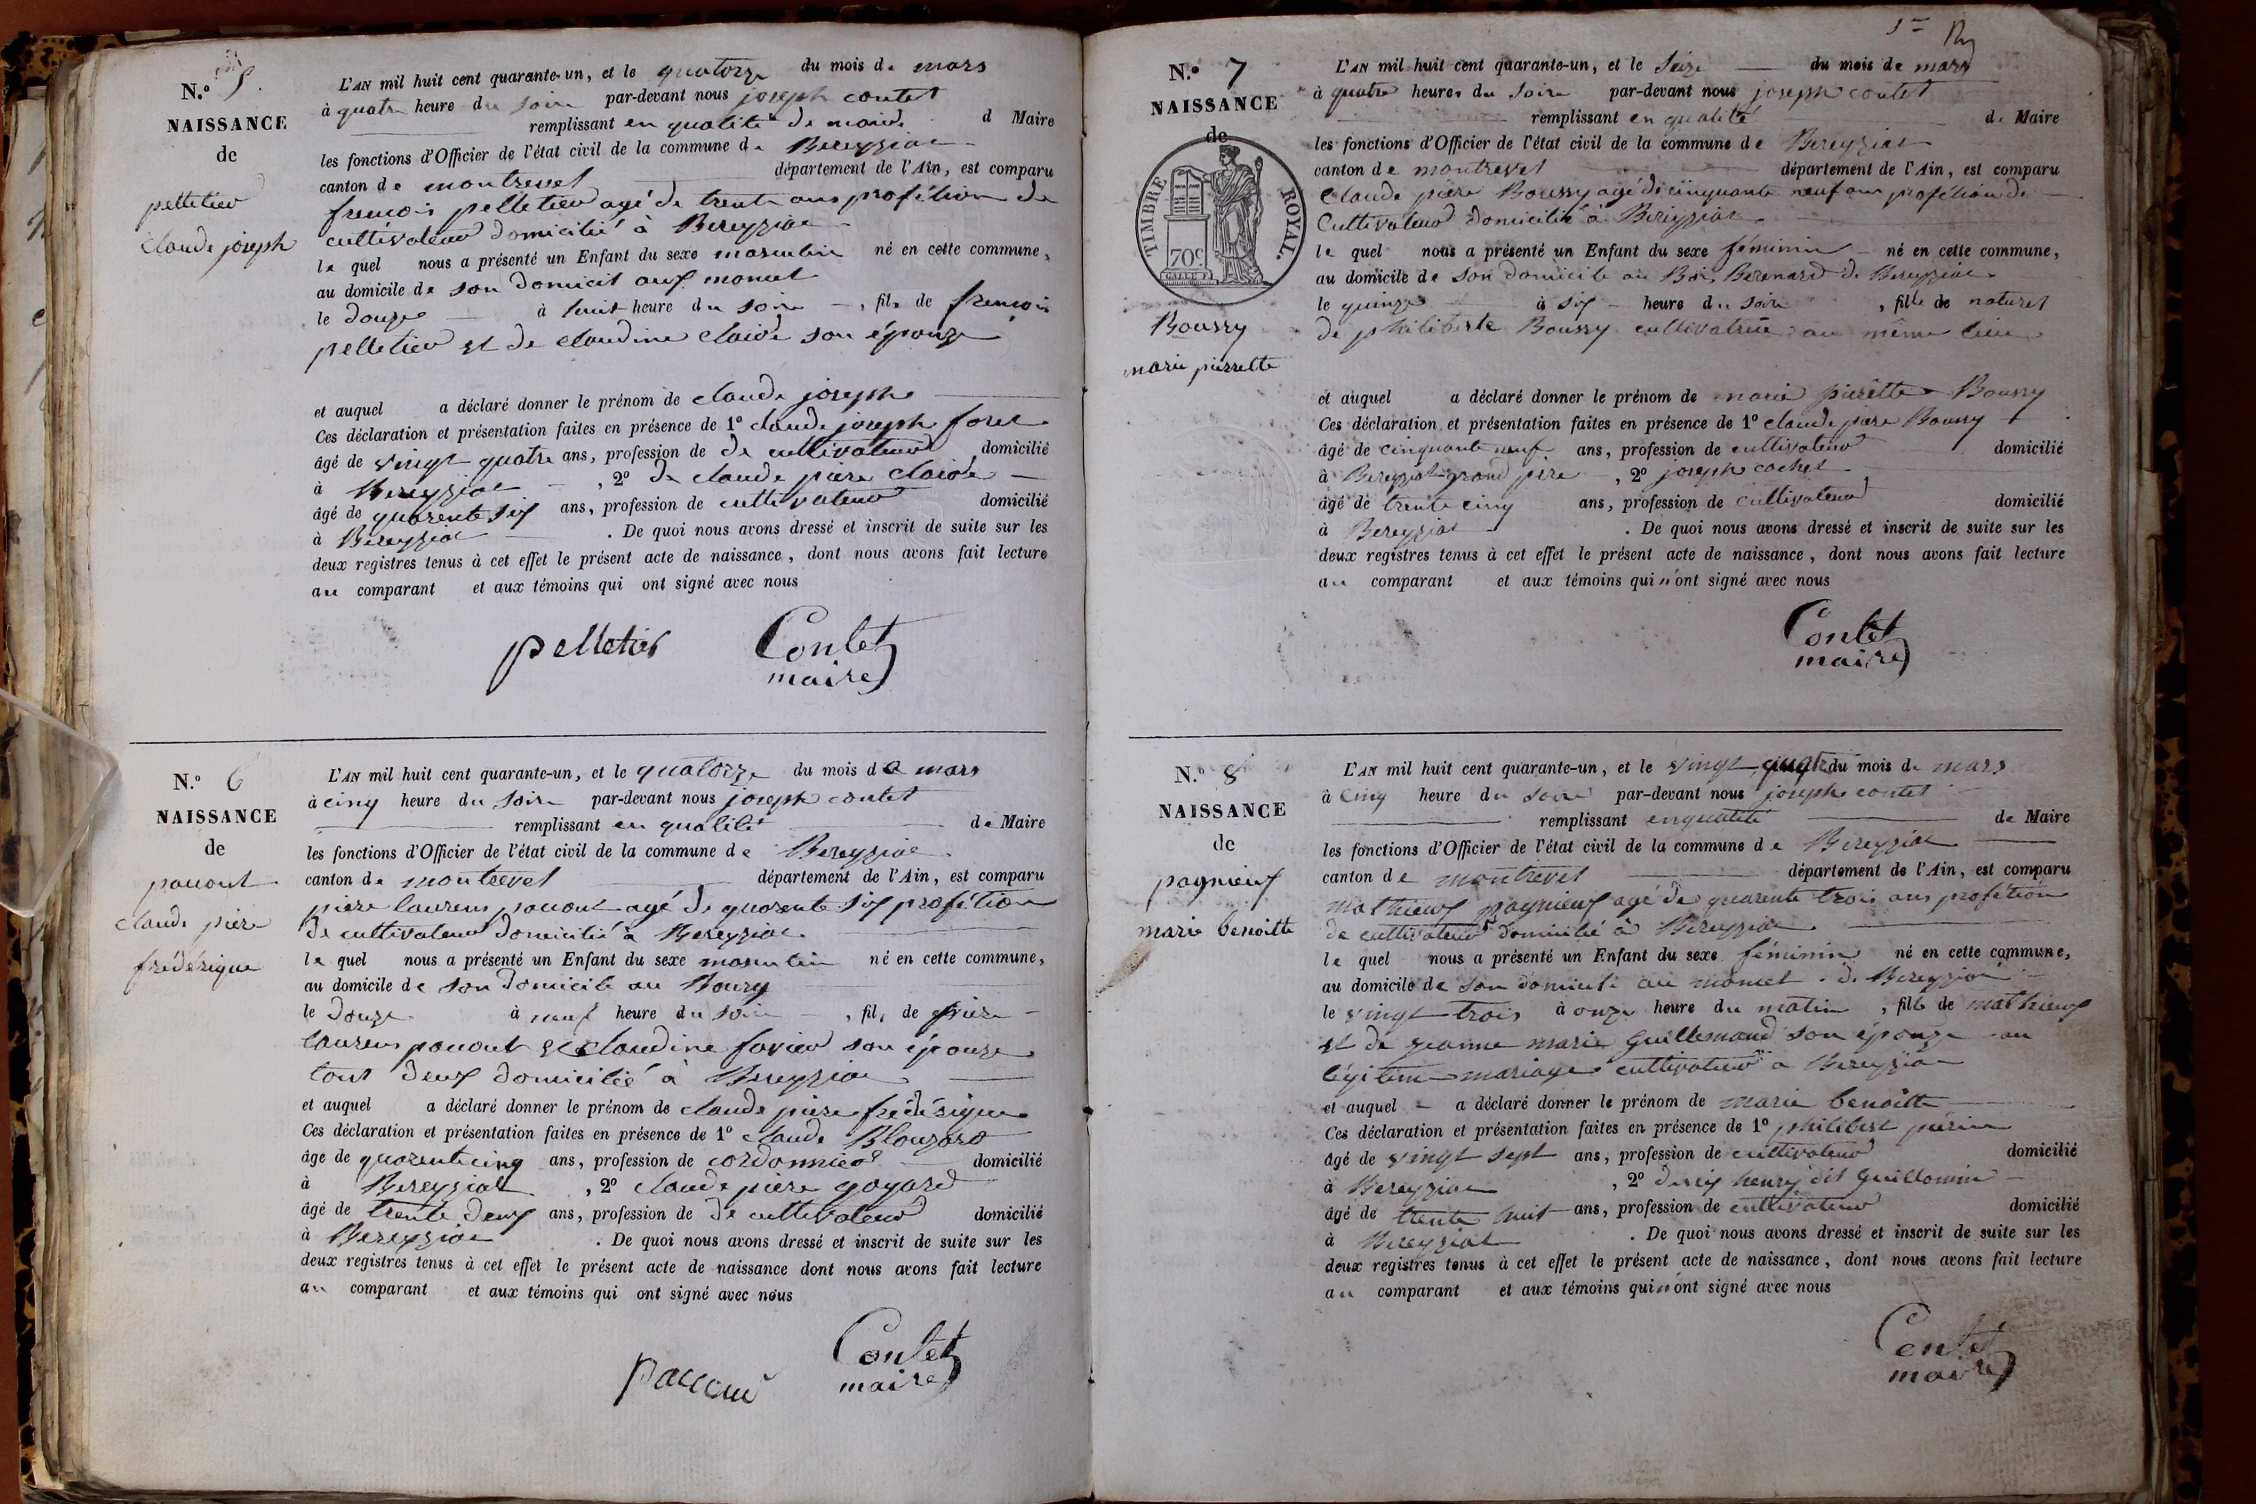 N.º 5.
NAISSANCE
de
pelletier
claude joseph
L'AN mil huit cent quarante-un, et le quatorze du mois de mars
à quatre heure du soire par-devant nous joseph contet
remplissant en qualité de maire d Maire
les fonctions d'Officier de l'état civil de la commune de Bereyziat
canton de montrevel département de l'Ain, est comparu
francois pelletier agé de trente ans profétion de
cultivateur domicilié à Bereyziat
le quel nous a présenté un Enfant du sexe masculin né en cette commune,
au domicile de son domicil aux moncet
le douze à huit heure du soire, fils de francois
pelletier et de claudine claire son épouze
et auquel a déclaré donner le prénom de claude joseph
Ces déclaration et présentation faites en présence de 1º claude joseph foret
âgé de vingt quatre ans, profession de de cultivateur domicilié
à Bereyziat, 2º de claude piere claire
âgé de quarente six ans, profession de cultivateur domicilié
à Bereyziat. De quoi nous avons dressé et inscrit de suite sur les
deux registres tenus à cet effet le présent acte de naissance, dont nous avons fait lecture
au comparant et aux témoins qui ont signé avec nous
pelletier Contet
maire
N.º 6
NAISSANCE
de
pacout
claude pière
frédérique
L'AN mil huit cent quarante-un, et le quatorze du mois de mars
à cinq heure du soire par-devant nous joseph contet
remplissant en qualité de Maire
les fonctions d'Officier de l'état civil de la commune de Bereyziat
canton de montrevel département de l'Ain, est comparu
pière laurens pacout agé de quarente six profétion
de cultivateur domicilié à Bereyziat
le quel nous a présenté un Enfant du sexe masculin né en cette commune,
au domicile de son domicile au Bourg
le douze à neuf heure du soire, fils de pière
laurens pacout et claudine favier son épouze
tout deux domicilié à Bereyziat
et auquel a déclaré donner le prénom de claude pière frédérique
Ces déclaration et présentation faites en présence de 1º claude Blouzard
âge de quarente cinq ans, profession de cordonnier domicilié
à Bereyziat, 2º claude pière goyard
âgé de trente deux ans, profession de de cultivateur domicilié
à Bereyziat. De quoi nous avons dressé et inscrit de suite sur les
deux registres tenus à cet effet le présent acte de naissance dont nous avons fait lecture
au comparant et aux témoins qui ont signé avec nous
Contet
maire
N.º 7
NAISSANCE
de
TIMBRE ROYAL.
70c.
Boussy
marie pierrette
L'AN mil huit cent quarante-un, et le seize du mois de mars
à quatre heures du soire par-devant nous joseph contet
remplissant en qualité de Maire
les fonctions d'Officier de l'état civil de la commune de Bereyziat
canton de montrevel département de l'Ain, est comparu
Claude pière Boussy agé de cinquante neuf ans profétion de
Cultivateur domicilié à Bereyziat
le quel nous a présenté un Enfant du sexe féminin né en cette commune,
au domicile de son domicile au Bois Bernard de Bereyziat
le quinze à six heure du soire, fille de naturel
de philiberte Boussy cultivatrice au même lieu
et auquel a déclaré donner le prénom de marie pierette Boussy
Ces déclaration et présentation faites en présence de 1º claude piere Boussy
âgé de cinquante neuf ans, profession de cultivateur domicilié
à Bereyziat grand père, 2º joseph cochet
âgé de trente cinq ans, profession de cultivateur domicilié
à Bereyziat. De quoi nous avons dressé et inscrit de suite sur les
deux registres tenus à cet effet le présent acte de naissance, dont nous avons fait lecture
au comparant et aux témoins qui n'ont signé avec nous
Contet
maire
N.º 8
NAISSANCE
de
pagnieux
marie benoitte
L'AN mil huit cent quarante-un, et le vingt quatre du mois de mars
à cinq heure du soire par-devant nous joseph contet
remplissant en qualité de Maire
les fonctions d'Officier de l'état civil de la commune de Bereyziat
canton de montrevel département de l'Ain, est comparu
mathieux pagnieux agé de quarente trois ans profétion
de cultivateur domicilié à Bereyziat
le quel nous a présenté un Enfant du sexe féminin né en cette commune,
au domicile de son domicile au moncet de Bereyziat
le vingt trois à onze heure du matin, fille de mathieux
et de jeanne marie Guillemaud son épouze au
légitime mariage cultivateur a Bereyziat
et auquel a déclaré donner le prénom de marie benoitte
Ces déclaration et présentation faites en présence de 1º philibert périn
âgé de vingt sept ans, profession de cultivateur domicilié
à Bereyziat, 2º henry dit Guillomin
âgé de trente huit ans, profession de cultivateur domicilié
à Bereyziat. De quoi nous avons dressé et inscrit de suite sur les
deux registres tenus à cet effet le présent acte de naissance, dont nous avons fait lecture
au comparant et aux témoins qui n'ont signé avec nous
Contet
maire